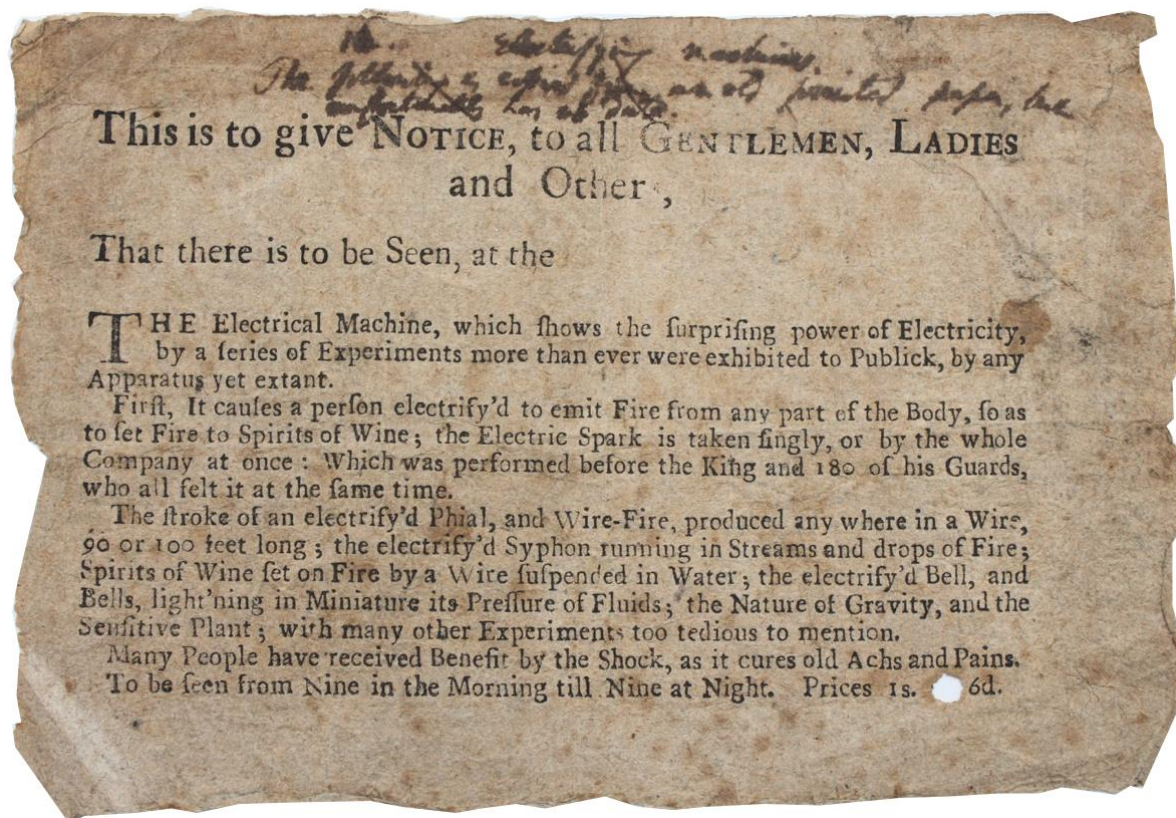 The electrifying machine,
The following is copied from an old printed paper, but
unfortunately has no date.
This is to give NOTICE, to all GENTLEMEN, LADIES
and Other,
That there is to be Seen, at the
THE Electrical Machine, which ſhows the ſurpriſing power of Electricity,
by a ſeries of Experiments more than ever were exhibited to Publick, by any
Apparatus yet extant.
Firſt, It cauſes a perſon electrify'd to emit Fire from any part of the Body, ſo as
to ſet Fire to Spirits of Wine; the Electric Spark is taken ſingly, or by the whole
Company at once: Which was performed before the King and 180 of his Guards,
who all felt it at the ſame time.
The ſtroke of an electrify'd Phial, and Wire-Fire, produced any where in a Wire,
90 or 100 feet long; the electrify'd Syphon running in Streams and drops of Fire;
Spirits of Wine ſet on Fire by a Wire ſuſpended in Water; the electrify'd Bell, and
Bells, light'ning in Miniature its Preſſure of Fluids; the Nature of Gravity, and the
Senſitive Plant; with many other Experiments too tedious to mention.
Many People have received Benefit by the Shock, as it cures old Achs and Pains.
To be ſeen from Nine in the Morning till Nine at Night. Prices 1s. 6d.